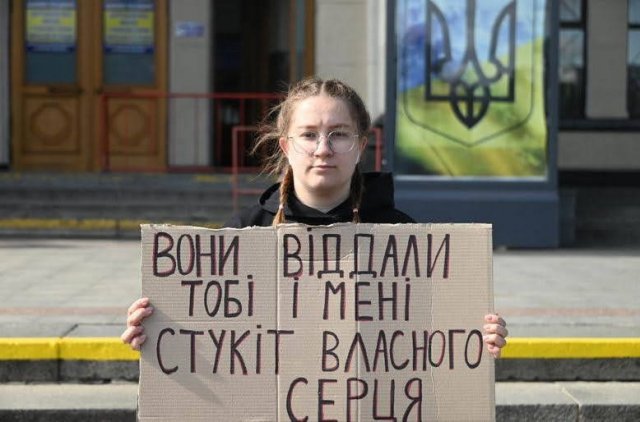 ВОНИ ВІДДАЛИ
ТОБІ І МЕНІ
СТУКІТ ВЛАСНОГО
СЕРЦЯ